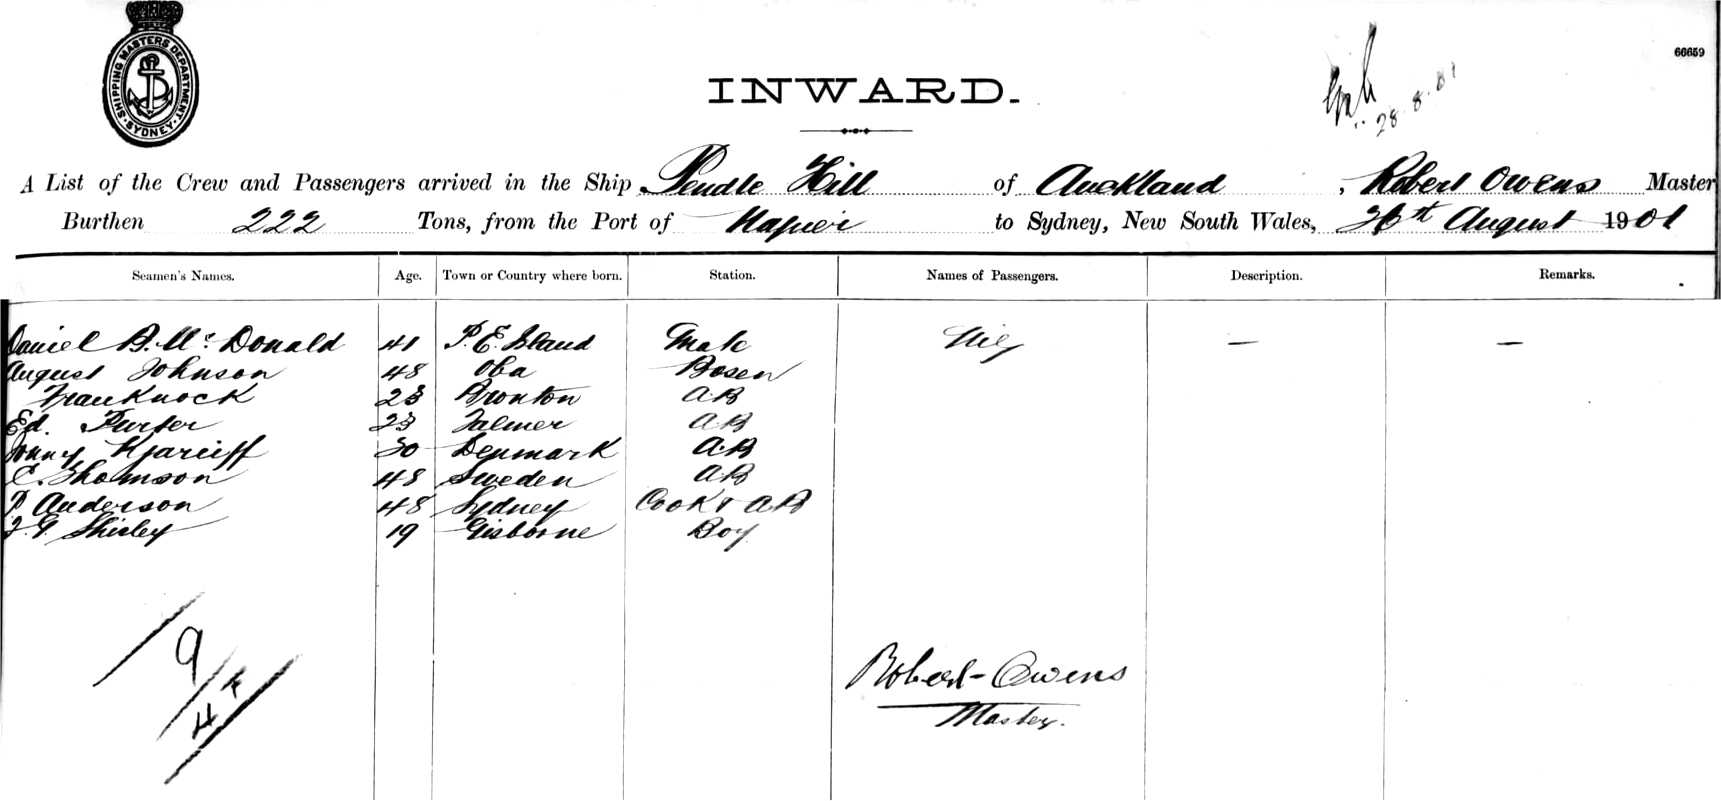 SHIPPING MASTERS DEPARTMENT. SYDNEY.
66659
INWARD.
28.8.01
A List of the Crew and Passengers arrived in the Ship Pendle Hill of Auckland, Robert Owens Master
Burthen 222 Tons, from the Port of Napier to Sydney, New South Wales, 26th August 1901
Seamen's Names. Age. Town or Country where born. Station. Names of Passengers. Description. Remarks.
Daniel B. Mc Donald 41 P. E. Island Mate Nil — —
August Johnson 48 Oba Bosen
23 A B
Ed. 23 A B
30 Denmark A.B
C. Thomson 48 Sweden A B
P Anderson 48 Sydney Cook & A B
J. G. Shirley 19 Gisborne Boy
9
Robert Owens
Master.